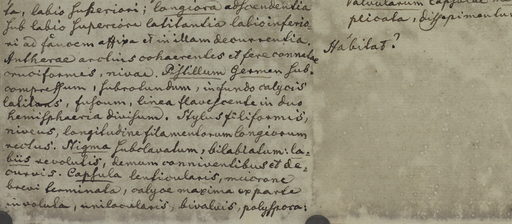 ta, labio superiori; longiora adscendentia
sub labio superiore latitantia labio inferio-
ri ad faucem affixa et in illam decurrentia,
Antherae arctius cohaerentes et fere connatae
cruciformes, niveae. Pistillum Germen sub-
compressum, subrotundum, in fundo calycis
latitans, fuscum, linea flavescente in duo
hemisphaeria divisum. Stylus filiformis,
niveus, longitudine filamentorum longiorum
rectus. Stigma subclavatum, bilabiatum: la-
biis revolutis, demum conniventibus et de-
curvis. Capsula lenticularis, mucrone
brevi terminata, calyce maxima ex parte
involuta, unilocularis, bivalvis, polysperma:
valvularum capsulae
plicata, dissepimentum
Habitat?